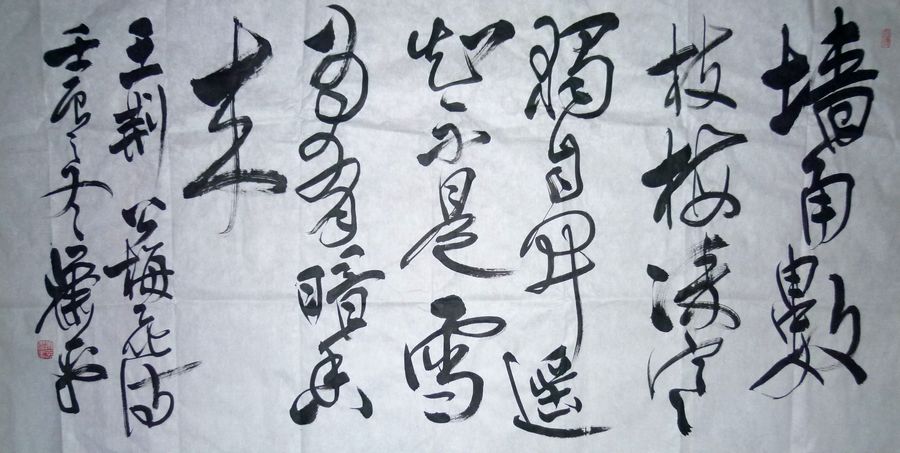 墙角數
枝梅凌寒
獨自開遥
知不是雪
为有暗香
来
王荆公梅花诗
壬辰之冬